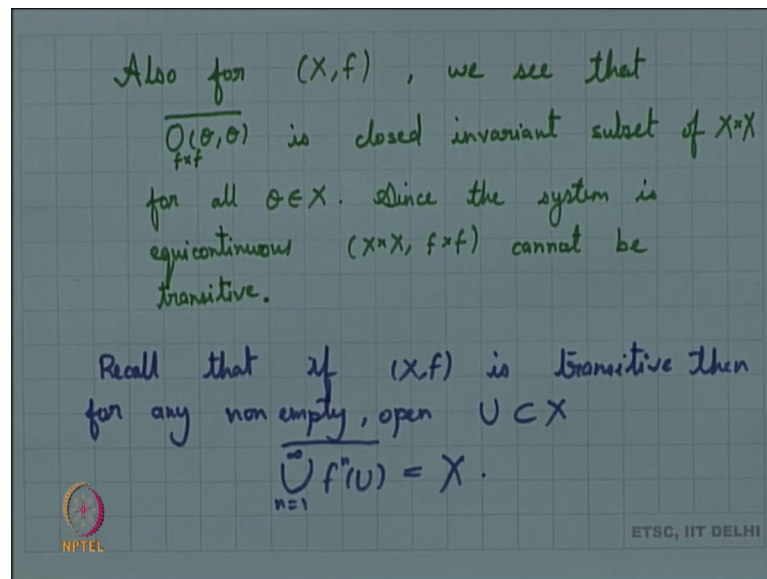 Also for (X,f) , we see that
$\overline{\underset{f \times f}{O}(\theta, \theta)}$ is closed invariant subset of X×X
for all θ ∈ X. Since the system is
equicontinuous (X×X, f×f) cannot be
transitive.
Recall that if (X,f) is transitive then
for any non empty, open U ⊂ X
$\overline{\bigcup_{n=1}^{\infty} f^n(U)}$ = X .
NPTEL
ETSC, IIT DELHI